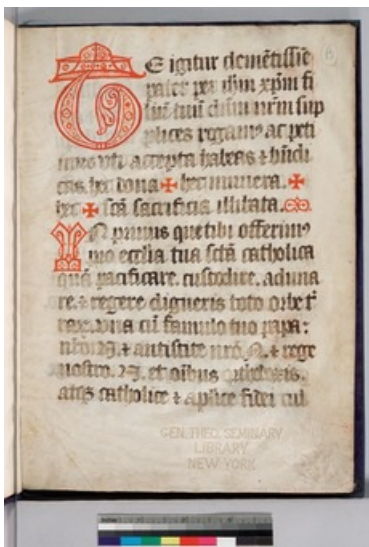 TE igitur clemētissīe
pater per ihm xpm fi
liū tuū dūm nrm sup
plices rogamꝰ ac peti
mus vti accepta habeas ⁊ bn̄di
cas. hec dona ✠ hec munera. ✠
hec ✠ sctā sacrificia illibata.
IN primis que tibi offerimꝰ
pro ecclīa tua sctā catholica
quā pacificare. custodire. aduna
re. ⁊ regere digneris toto orbe t̄
raꝝ. vna cū famulo tuo papa:
nr̄o .N. ⁊ antistite nr̄o .N. ⁊ rege
nostro .N. et oībus orthodoxis.
atqꝫ catholice ⁊ aplīce fidei cul
GEN. THEO. SEMINARY
LIBRARY
NEW YORK